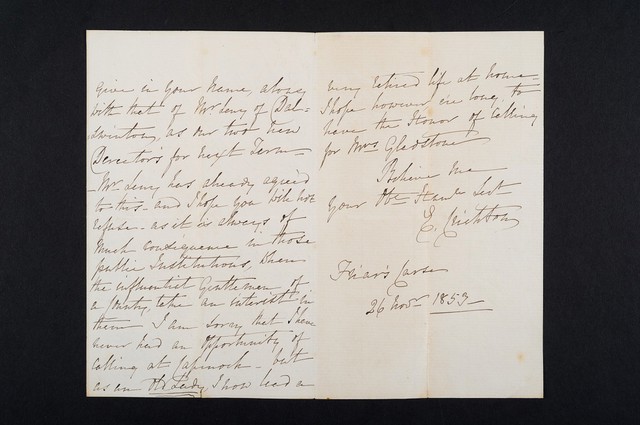 given in Your Name, along
with that of Mr Leny of Dal=
swinton, as our two New
Directors for next Term—
—Mr Leny has already agreed
to this—and I hope you will not
refuse—as it is always of
Much consequence in those
public Institutions, when
the influential Gentlemen of
a County, take an interest in
them I am sorry that I have
never had an Opportunity of
Calling at Capenoch—but
as an Old Lady, I now lead a
very retired life at home—
I hope however ere long, to
have the Honor of Calling
for Mrs Gladstone
Believe me
Your Obt
E. Crichton
Friar's Carse
26 Novr 1853